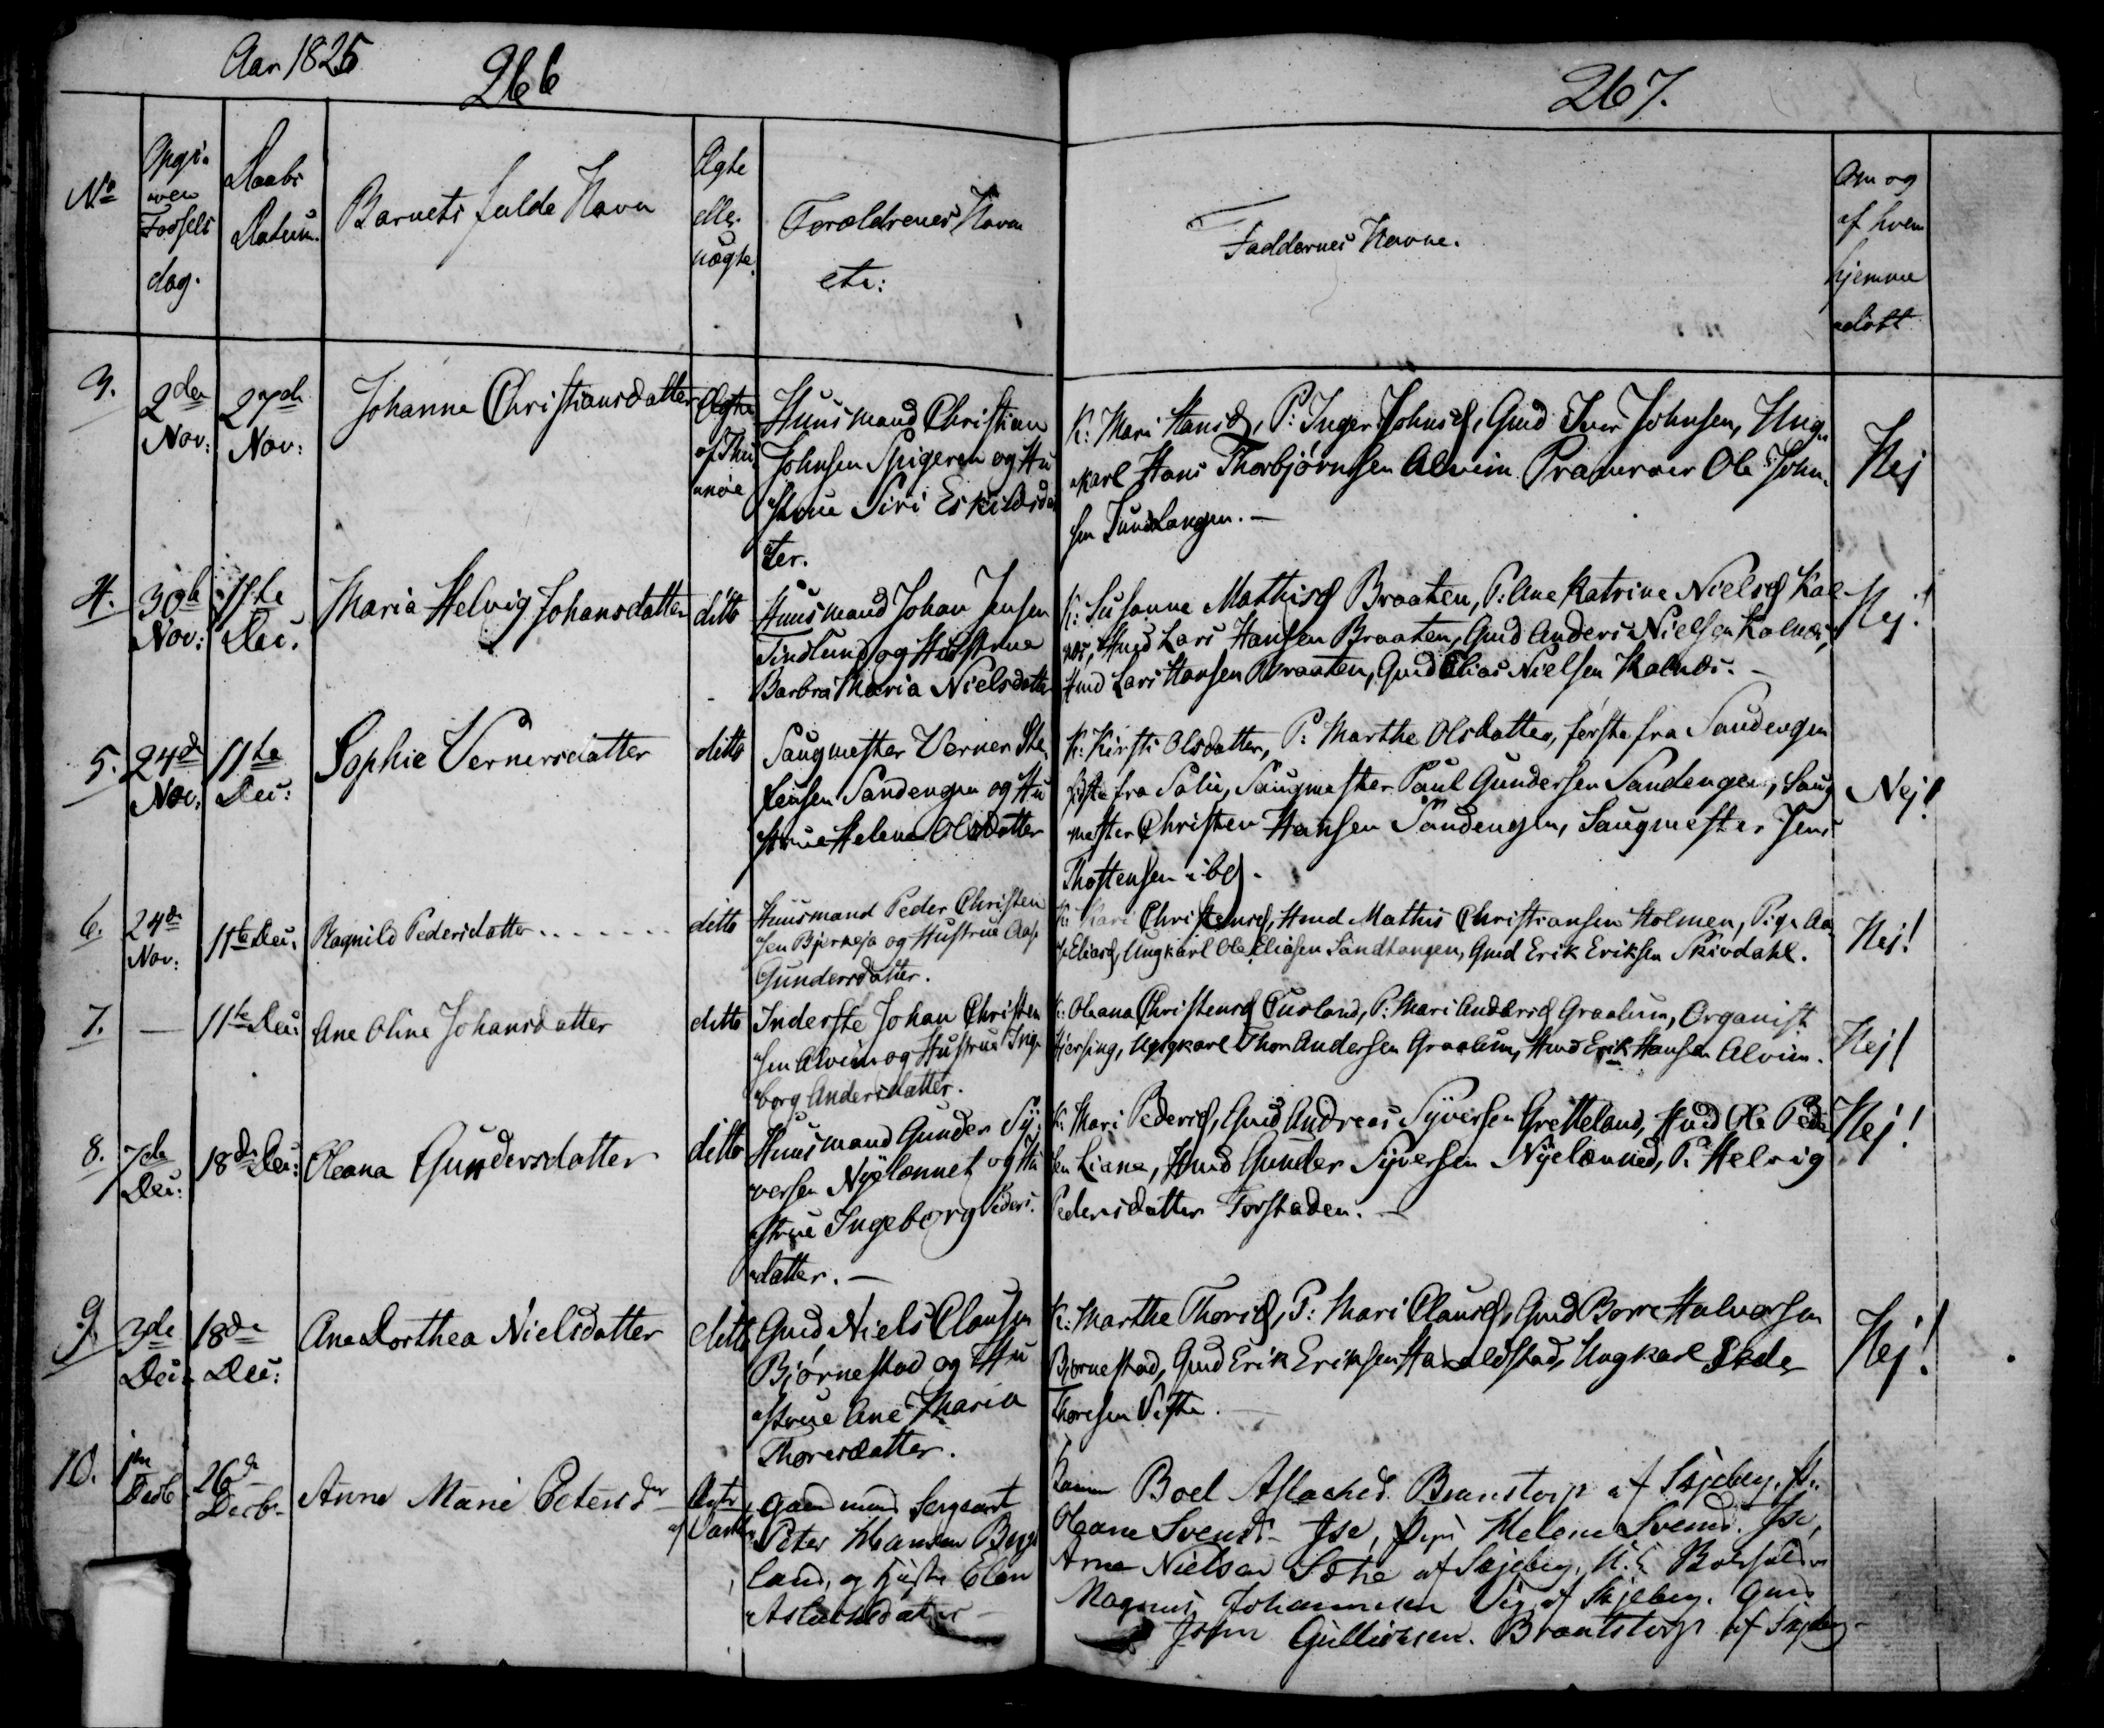 Aar 1825
266
267.
No
Opgi-
ven
Fødsels
dag.
Daabs
Datum.
Barnets fulde Navn
Ægte
elle
uægte
Forældrenes Navn
etc:
Faddernes Navne.
Om og
af hvem
hjemme
døbt
3.
2den
Nov:
27de
Nov:
Johanna Christiansdatter
Ægte
af Thu
nøe
Huusmand Christian
Johnsen Spigeren og Hu
strue Siri Eskilds dat
ter.
K: Mari Hansd, P: Inger Johnsd, Gmd Iver Johnsen, Ung
karl Hans Thorbjørnsen Alvim Pramroer Ole John
sen Tundlangen. —
Nej
4.
30te
Nov:
11te
Dec:
Maria Helvig Johansdatter
ditto
Huusmand Johan Jensen
Tindlund og Hustrue
Barbra Maria Nielsdatter
K: Susanne Mathisd Braaten, P: Ane Katrine Nielsd Kal
næs, Hmd Lars Hansen Braaten, Gmd Anders Nielsen Kalnæs,
Hmd Lars Hansen Braaten, Gmd Elias Nielsen Kalnæs. —
Nej!
5.
24de
Nov:
11te
Dec:
Sophie Vernersdatter
ditto
Saugmester Verner Ste
fensen Sandengen og Hu
strue Helene Olsdatter
K: Kirsti Olsdatter, P: Marthe Olsdatter, første fra Sandengen
sidste fra Solie, Saugmester Paul Gundersen Sandengen, Saug
mester Christen Hansen Sandengen, Saugmester Jens
Thostensen ibd.
Nej!
6.
24de
Nov:
11te Dec:
Ragnild Pedersdatter . . . . . . .
ditto
Huusmand Peder Christen
sen Bjerneja og Hustrue Aase
Gundersdatter.
K: Kari Christensd, Hmd Mathis Christiansen Holmen, Pige Aa
se Eliasd, Ungkarl Ole Eliasen Sandtangen, Gmd Erik Eriksen Skivdahl.
Nej!
7.
—
11te Dec:
Ane Oline Johansdatter
ditto
Inderste Johan Christen
sen Alvim og Hustrue Inge
borg Andersdatter.
K: Oleana Christensd Tusland, P: Mari Andersd Graalum, Organist
Hjersing, Ungkarl Thor Andersen Graalum, Hmd Erik Hansen Alvim.
Nej!
8.
7de
Dec:
18de Dec:
Oleana Gundersdatter
ditto
Huusmand Gunder Sy
versen Nyelænnet og Hu
strue Ingeborg Peders
datter. —
K: Mari Pedersd, Gmd Andreas Syversen Gretteland, Hmd Ole Peder
sen Liane, Hmd Gunder Syversen Nyelænned, P: Helvig
Pedersdatter Forstaden. —
Nej!
9.
3de
Dec:
18de
Dec:
Ane Dorthea Nielsdatter
ditto
Gmd Niels Clausen
Bjørnestad og Hu
strue Ane Maria
Thoresdatter.
K: Marthe Thorisd, P: Mari Clausd, Gmd Borre Halvorsen
Bjørnestad, Gmd Erik Eriksen Haraldstad, Ungkarl Peder
Thoresen Visten. —
Nej!
10.
1te
Decb
26de
Decb.
Anne Marie Petersdtr
Ægte
af Varte
Gaardmand Sergeant
Peter Hansen Byge
land, og Hustr Elen
Aslaksdatter —
Boel Aslaksd. Brantstorp af Skjeberg, P:
Oleane Svends. Ise, Pige Helene Svends. Ise,
Arne Nielsen af Skjeberg,
Magnus Johannesen Vig af Skjeberg. Gmd
John Gulliksen. Brantstorp af Skjeberg